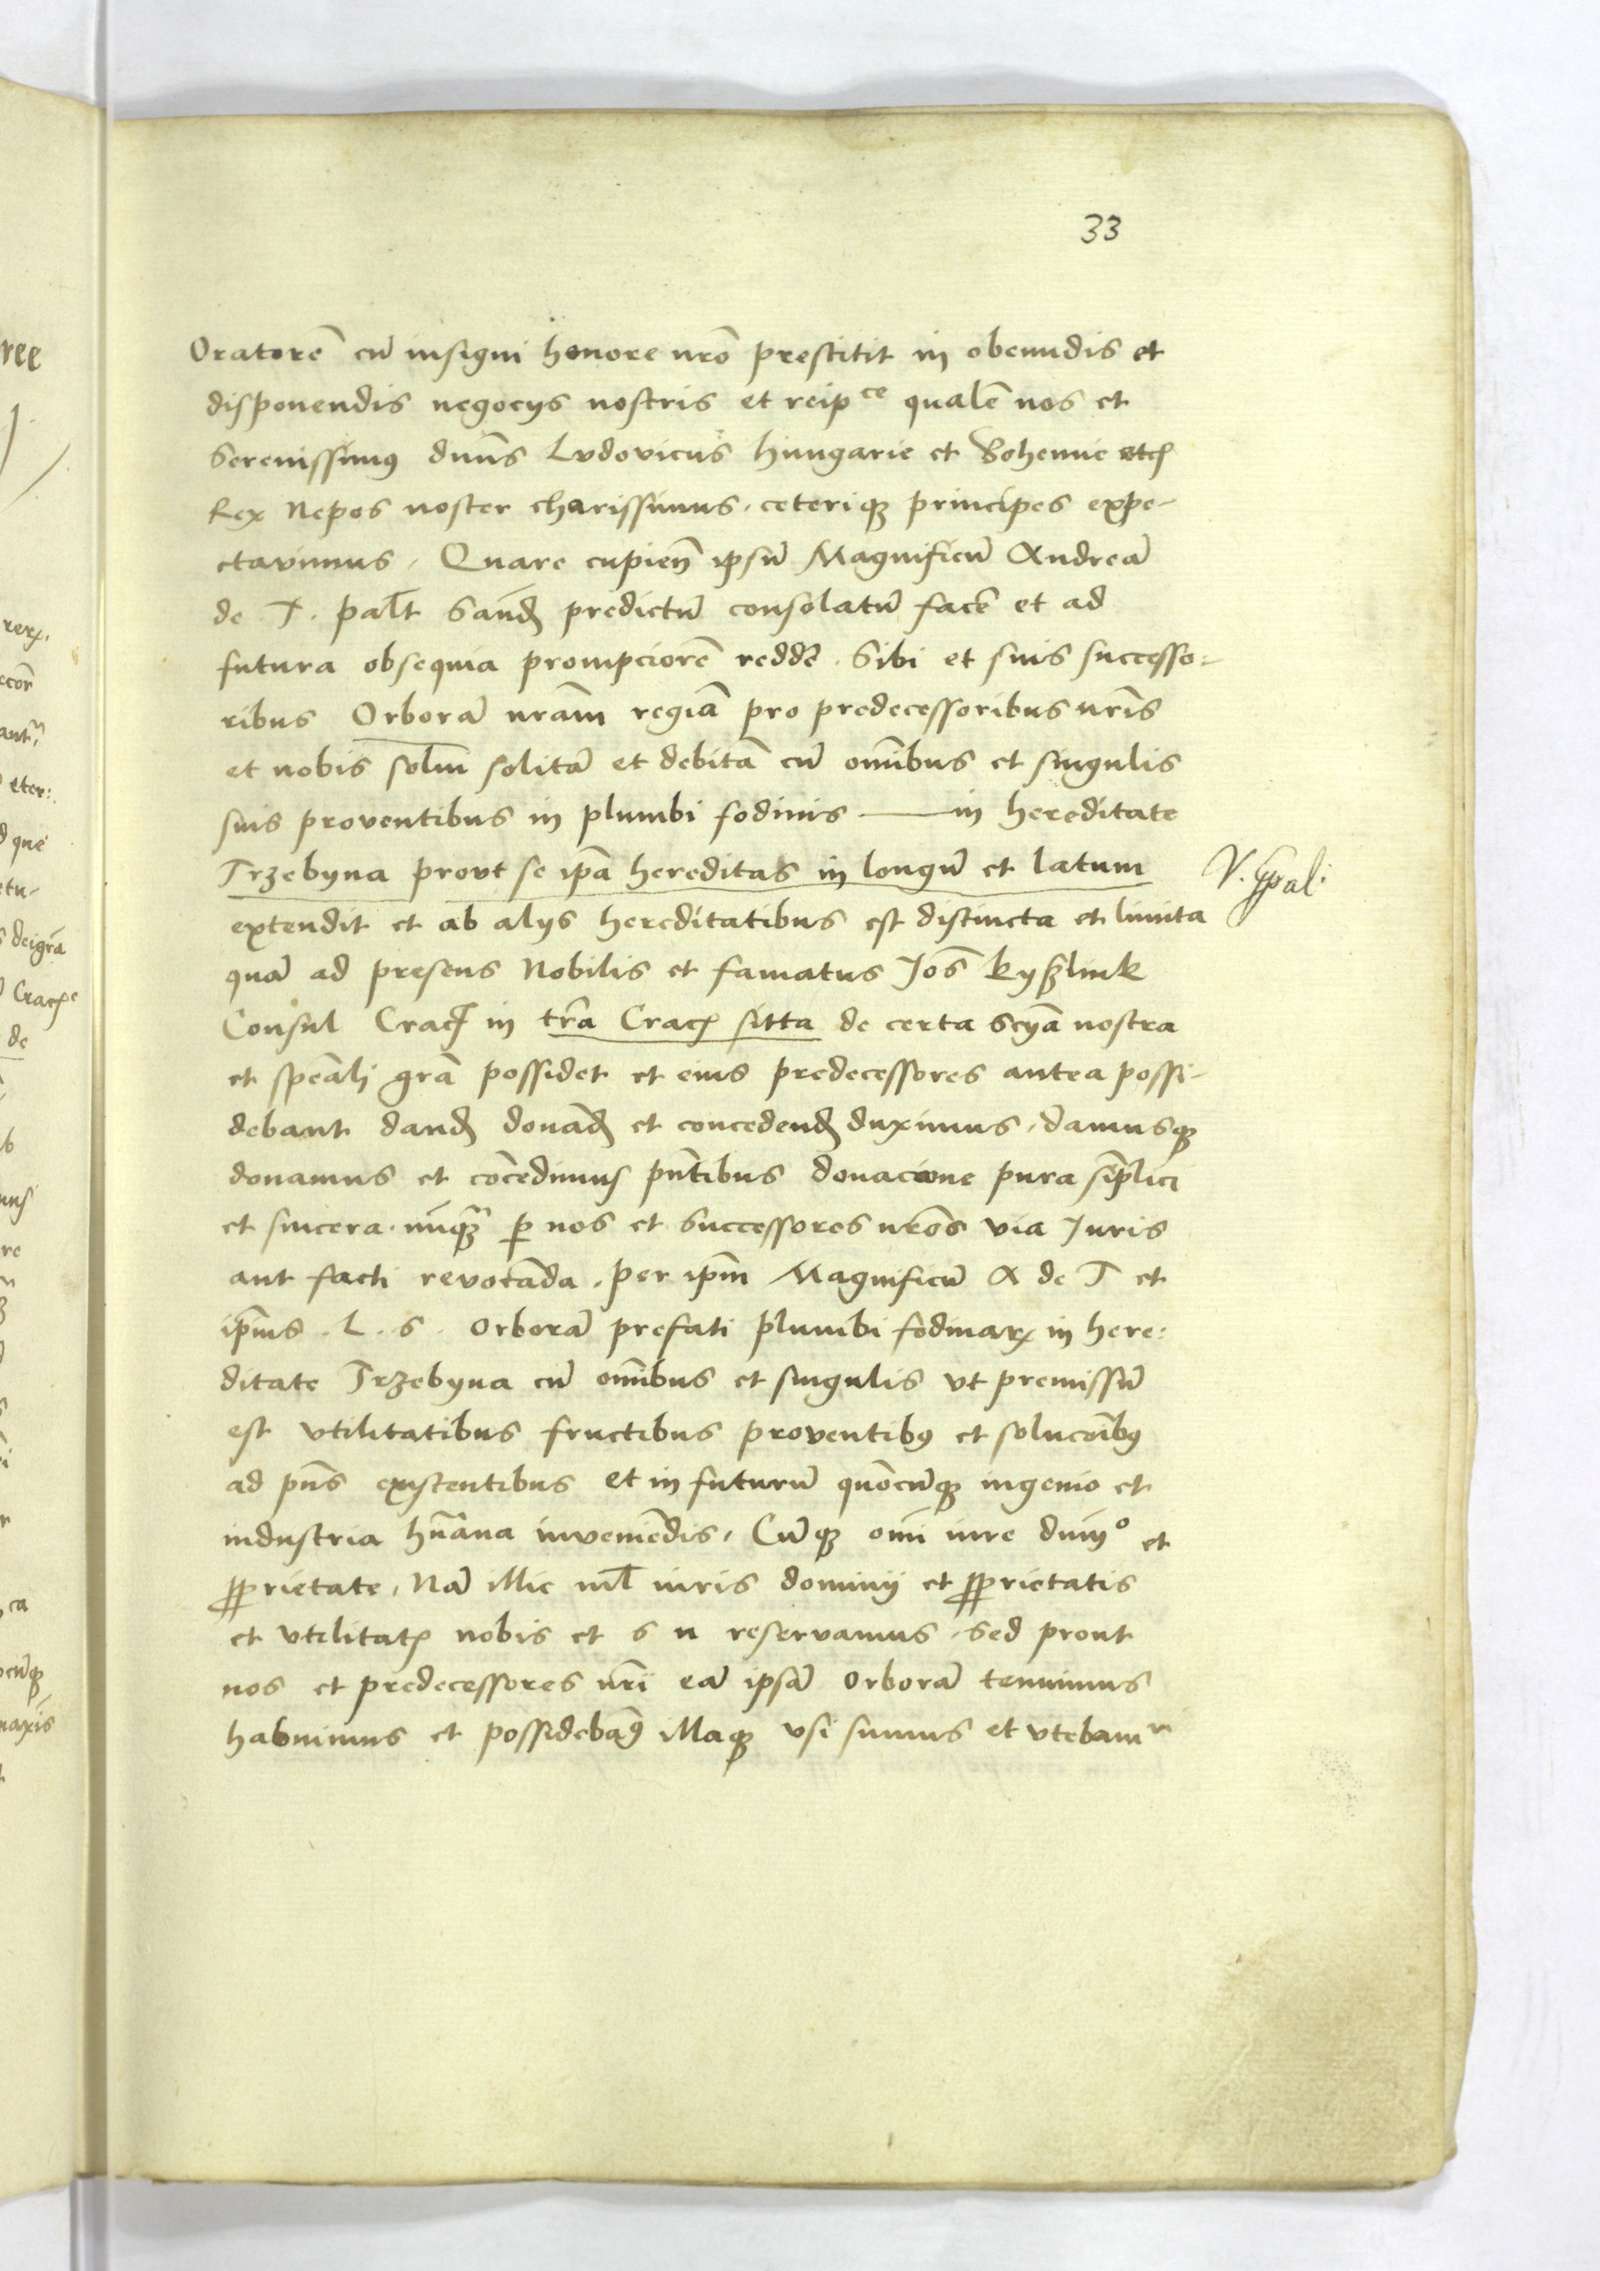 33
Oratorē cū insigni honore nrō prestitit in obeundis et
disponendis negocys nostris et reip ce qualē nos et
Serenissimꝰ dnūs Lvdovicus hungarie et Bohemie etcꝭ
Rex Nepos noster charissimus, ceteriqꝫ principes expe-
ctavimus, Quare cupienꝭ ipsū Magnificū Andreā
de T. pal̄t Sandꝭ predictū consolatū facē et ad
futura obsequia prompciorē reddē. Sibi et suis successo-
ribus Orborā nrām regiā pro predecessoribus nrīs
et nobis solm̄ solitā et debitā cū om̄ibus et singulis
suis proventibus in plumbi fodinis — in hereditate
Trzebyna provt se ip̄a hereditas in longū et latum
extendit et ab alys hereditatibus est distincta et limita
quā ad presens Nobilis et famatus Jos̄
Consul Cracꝭ in tr̄a Cracꝭ sitta de certa scyā nostra
et speāli grā possidet et eius predecessores antea possi-
debant dandꝭ donādꝭ et concedendꝭ duximus, damusqꝫ
donamus et cōcedimus pn̄tibus donacione pura sīplici
et sincera nūqꝫ ꝑ nos et successores nrōs via Juris
aut facti revocāda, per ipm̄ Magnificū A de T et
ip̄ius. L. S. Orborā prefati plumbi fodinarꝝ in here:
ditate Trzebyna cū om̄ibus et singulis vt premissū
est vtilitatibus fructibus proventibꝰ et soluciōibꝰ
ad pn̄s existentibus et in futurū quōcūqꝫ ingenio et
industria hūana inveniēdis, Cūqꝫ om̄i iure dmīo et
ꝓprietate, Nā illic nil̄ iuris dominij et ꝓprietatis
et vtilitatꝭ nobis et s n reservamus, sed prout
nos et predecessores nrī eā ipsā Orborā tenuimus
habuimus et possidebāꝰ illaqꝫ vsi sumus et vtebamur